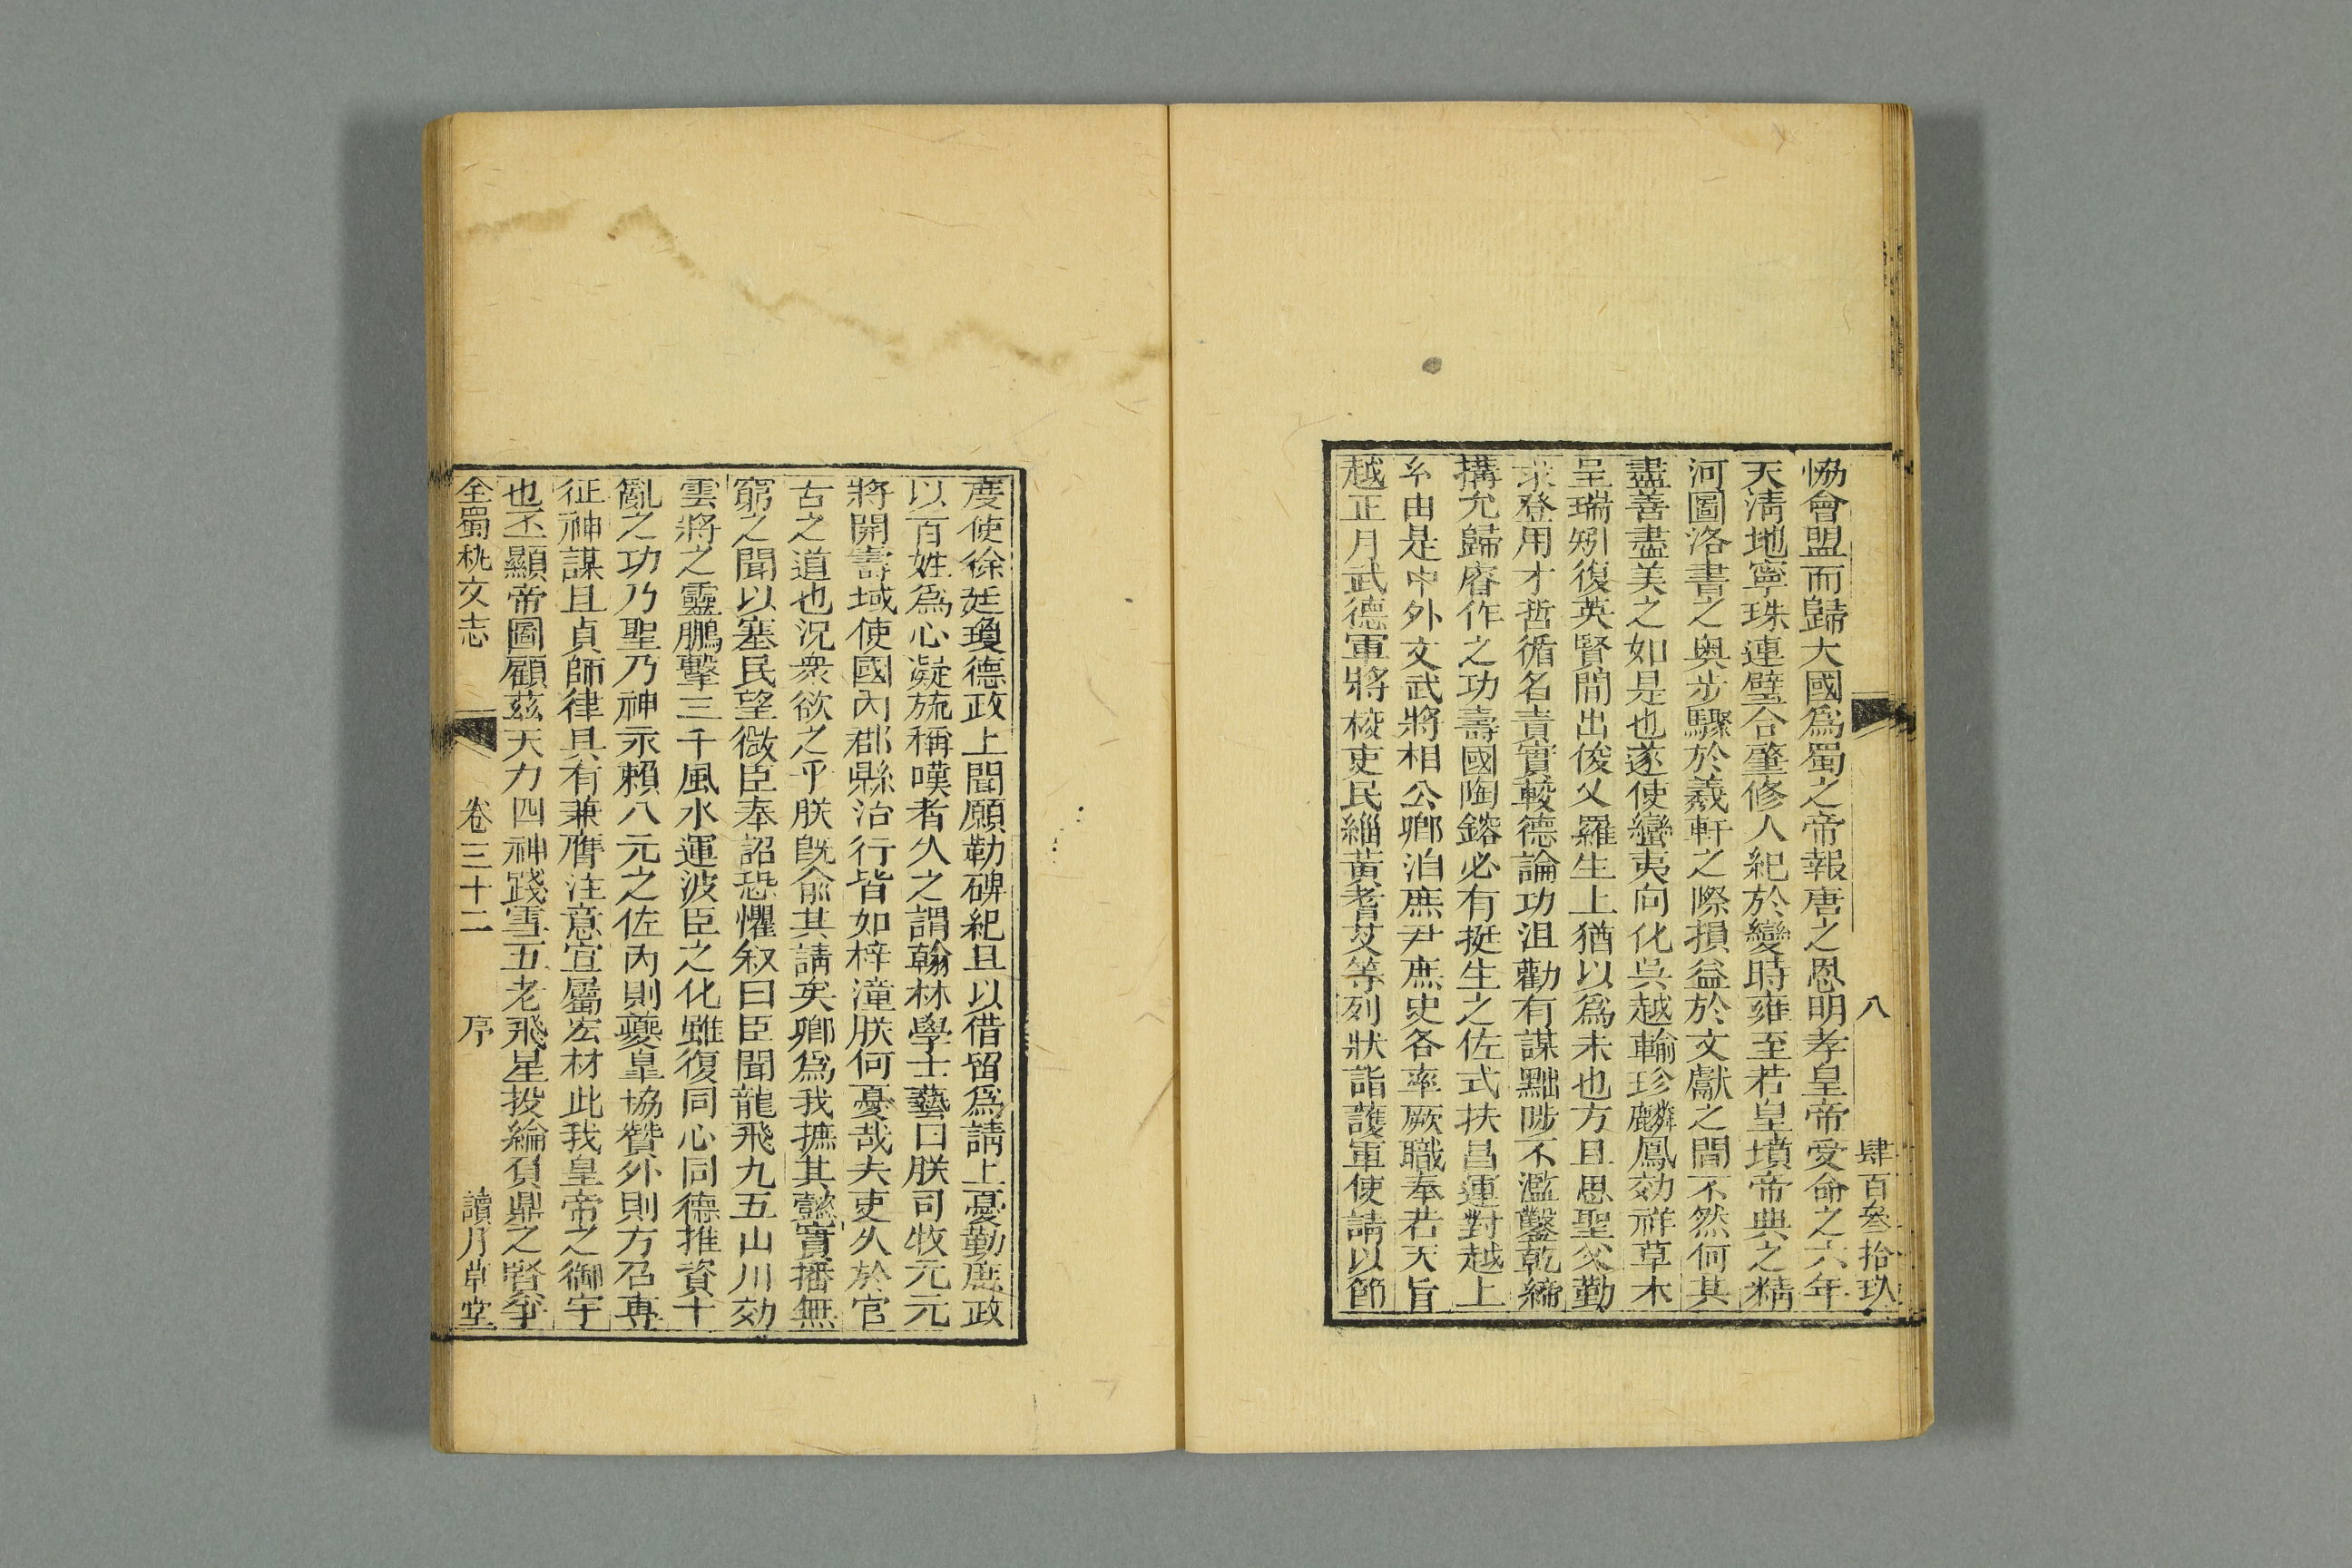 八 肆百叄拾玖
恊會盟而歸大國爲蜀之帝報唐之恩明孝皇帝愛命之六年
天淸地寧珠連璧合肇修人紀於變時雍至若皇墳帝典之精
河圖洛書之奥步驟於羲軒之際損益於文獻之間不然何其
盡善盡美之如是也遂使蠻夷向化吳越輸珍麟鳳効祥草木
呈瑞矧復英賢間出俊乂羅生上猶以爲未也方且思聖父勤
求登用才哲循名責實較德論功沮勸有謀黜陟不濫鑿乾締
搆允歸睿作之功壽國陶鎔必有挺生之佐式扶昌運對越上
兮由是中外文武將相公卿洎庶尹庶史各率厥職奉若天旨
越正月武德軍將校吏民緇黃耆艾等列狀詣護軍使請以節
度使徐廷瓊德政上聞願勒碑紀且以借留爲請上憂勤庶政
以百姓爲心凝旒稱嘆者久之謂翰林學士藝曰朕司牧元元
將開壽域使國內郡縣治行皆如梓潼朕何憂哉夫吏久於官
古之道也況衆欲之乎朕旣俞其請矣卿爲我摭其懿實播無
窮之聞以塞民望微臣奉詔恐懼叙曰臣聞龍飛九五山川効
雲將之靈鵬擊三千風水運波臣之化雖復同心同德推資十
亂之功乃聖乃神永賴八元之佐內則夔皐協贊外則方召專
征神謀且貞師律具有兼膺注意宣屬宏材此我皇帝之御宇
也丕顯帝圖顧茲天力四神踐雪五老飛星投綸負鼎之賢爭
全蜀秇文志 卷三十二 序 讀月草堂